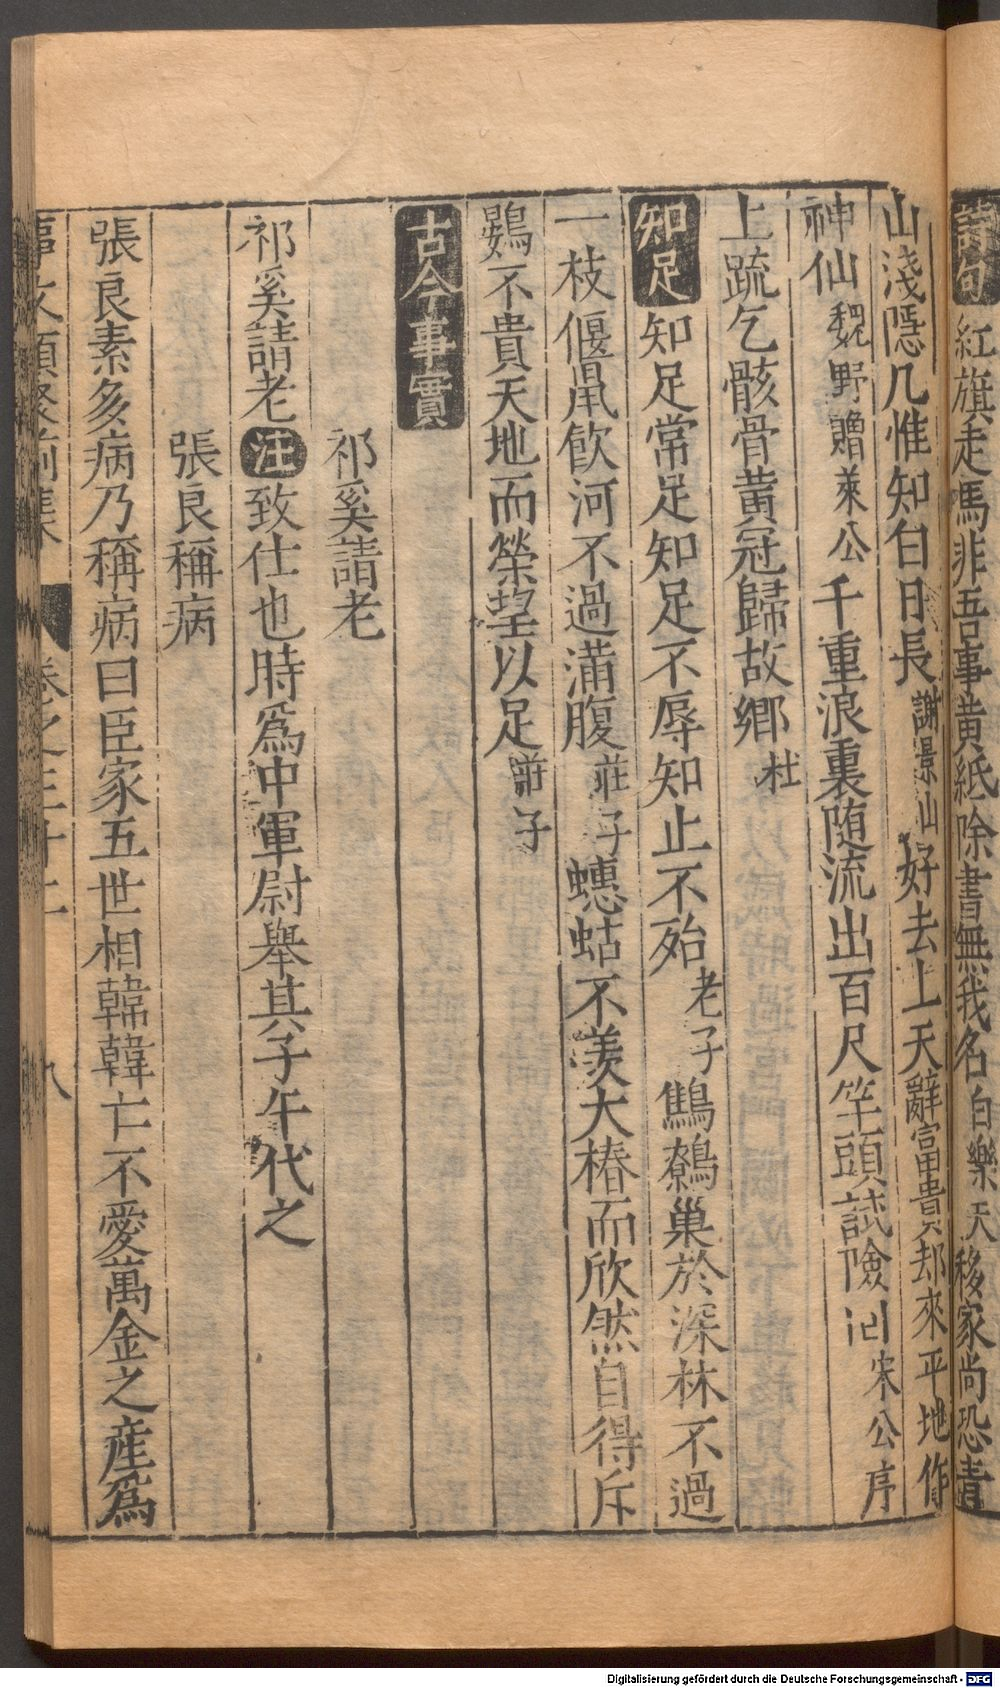 詩句 紅旗走馬非吾事黄紙除書無我名 白樂天 移家尚恐青
山淺隱几惟知白日長 謝景山 好去上天辭富貴却來平地作
神仙 魏野贈萊公 千重浪裏随流出百尺竿頭試險 宋公序
上疏乞骸骨黄冠歸故鄉 杜
知足 知足常足知足不辱知止不殆 老子 鷦鷯巢於深林不過
一枝偃鼠飲河不過滿腹 莊子 蟪蛄不羡大椿而欣然自得斥
鷃不貴天地而榮望以足 莊子
古今事實
祁奚請老
祁奚請老 注 致仕也時爲中軍尉舉其子午代之
張良稱病
張良素多病乃稱病曰臣家五世相韓韓亡不愛萬金之產爲
事文類聚前集 卷之三十二 八
Digitalisierung gefördert durch die Deutsche Forschungsgemeinschaft - DFG